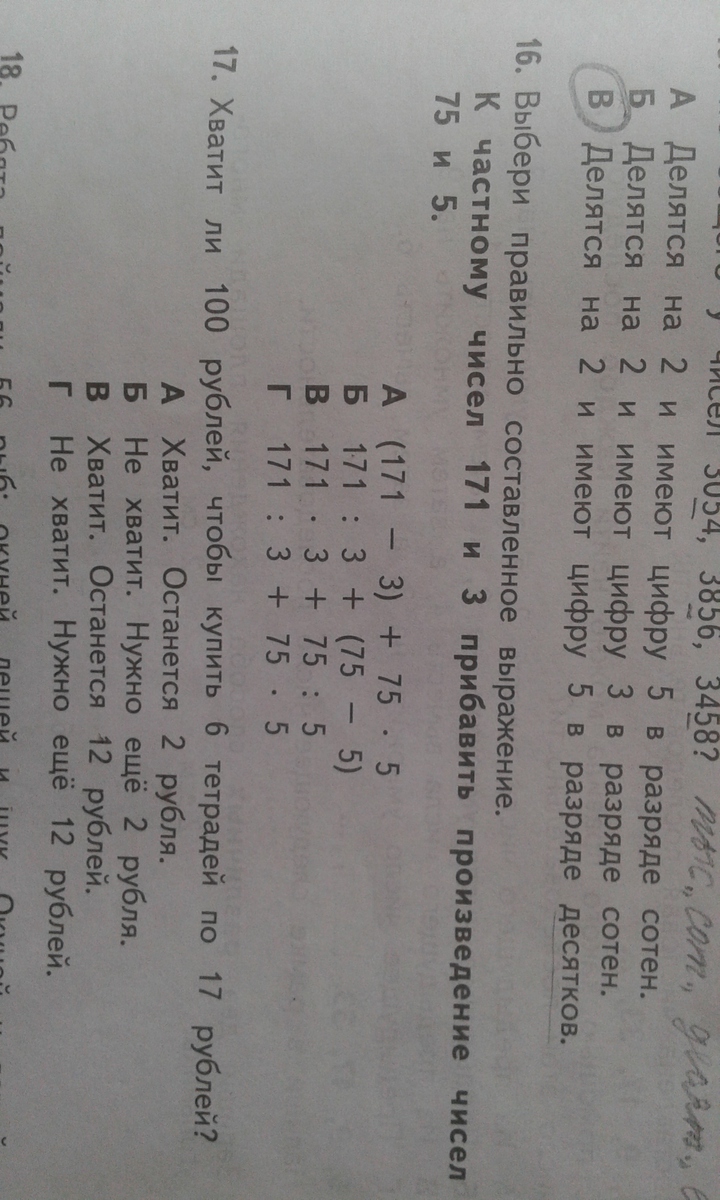 у чисел 3054, 3856, 3458?
А Делятся на 2 и имеют цифру 5 в разряде сотен.
Б Делятся на 2 и имеют цифру 3 в разряде сотен.
В Делятся на 2 и имеют цифру 5 в разряде десятков.
16. Выбери правильно составленное выражение.
К частному чисел 171 и 3 прибавить произведение чисел
75 и 5.
А (171 – 3) + 75 · 5
Б 171 : 3 + (75 – 5)
В 171 · 3 + 75 : 5
Г 171 : 3 + 75 · 5
17. Хватит ли 100 рублей, чтобы купить 6 тетрадей по 17 рублей?
А Хватит. Останется 2 рубля.
Б Не хватит. Нужно ещё 2 рубля.
В Хватит. Останется 12 рублей.
Г Не хватит. Нужно ещё 12 рублей.
18. Ребята поймали 56 рыб: окуней, лещей и щук. Окуней